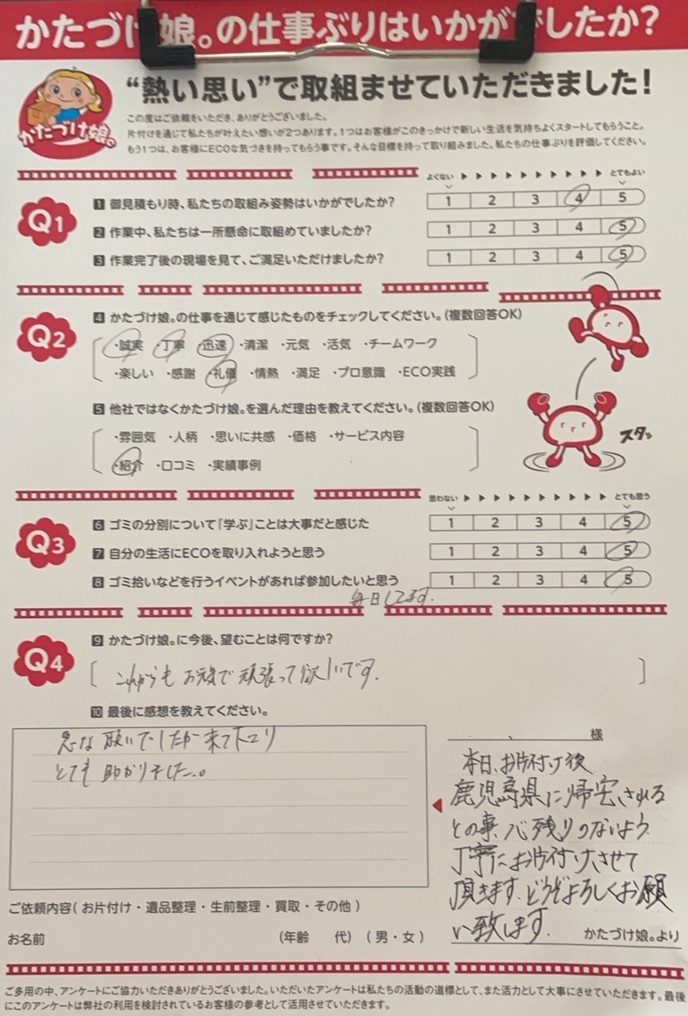 かたづけ娘。の仕事ぶりはいかがでしたか?
"熱い思い"で取組ませていただきました!
かたづけ娘。
この度はご依頼をいただき、ありがとうございました。
片付けを通じて私たちが叶えたい想いが2つあります。1つはお客様がこのきっかけで新しい生活を気持ちよくスタートしてもらうこと。
もう1つは、お客様にECOな気づきを持ってもらう事です。そんな目標を持って取り組みました。私たちの仕事ぶりを評価してください。
よくない ▶ ▶ ▶ ▶ ▶ ▶ ▶ ▶ ▶ ▶ とてもよい
Q1
1 御見積もり時、私たちの取組み姿勢はいかがでしたか? 1 2 3 4 5
2 作業中、私たちは一所懸命に取組めていましたか? 1 2 3 4 5
3 作業完了後の現場を見て、ご満足いただけましたか? 1 2 3 4 5
Q2
4 かたづけ娘。の仕事を通じて感じたものをチェックしてください。(複数回答OK)
・誠実 ・丁寧 ・迅速 ・清潔 ・元気 ・活気 ・チームワーク
・楽しい ・感謝 ・礼儀 ・情熱 ・満足 ・プロ意識 ・ECO実践
5 他社ではなくかたづけ娘。を選んだ理由を教えてください。(複数回答OK)
・雰囲気 ・人柄 ・思いに共感 ・価格 ・サービス内容
・紹介 ・口コミ ・実績事例
スタッ
思わない ▶ ▶ ▶ ▶ ▶ ▶ ▶ ▶ ▶ ▶ とても思う
Q3
6 ゴミの分別について「学ぶ」ことは大事だと感じた 1 2 3 4 5
7 自分の生活にECOを取り入れようと思う 1 2 3 4 5
8 ゴミ拾いなどを行うイベントがあれば参加したいと思う 1 2 3 4 5
毎日してます.
Q4
9 かたづけ娘。に今後、望むことは何ですか?
これからも お元気で 頑張って欲しいです.
10 最後に感想を教えてください。
急な 願いでしたが 来て下さり
とても 助かりました。
様
本日、お片付け後
鹿児島県に帰宅される
との事、心残りのないよう
丁寧にお片付けさせて
頂きます。どうぞよろしくお願
い致します.
かたづけ娘。より
ご依頼内容(お片付け・遺品整理・生前整理・買取・その他)
お名前 (年齢 代)(男・女)
ご多用の中、アンケートにご協力いただきありがとうございました。いただいたアンケートは私たちの活動の道標として、また活力として大事にさせていただきます。最後
にこのアンケートは弊社の利用を検討されているお客様の参考として活用させていただきます。